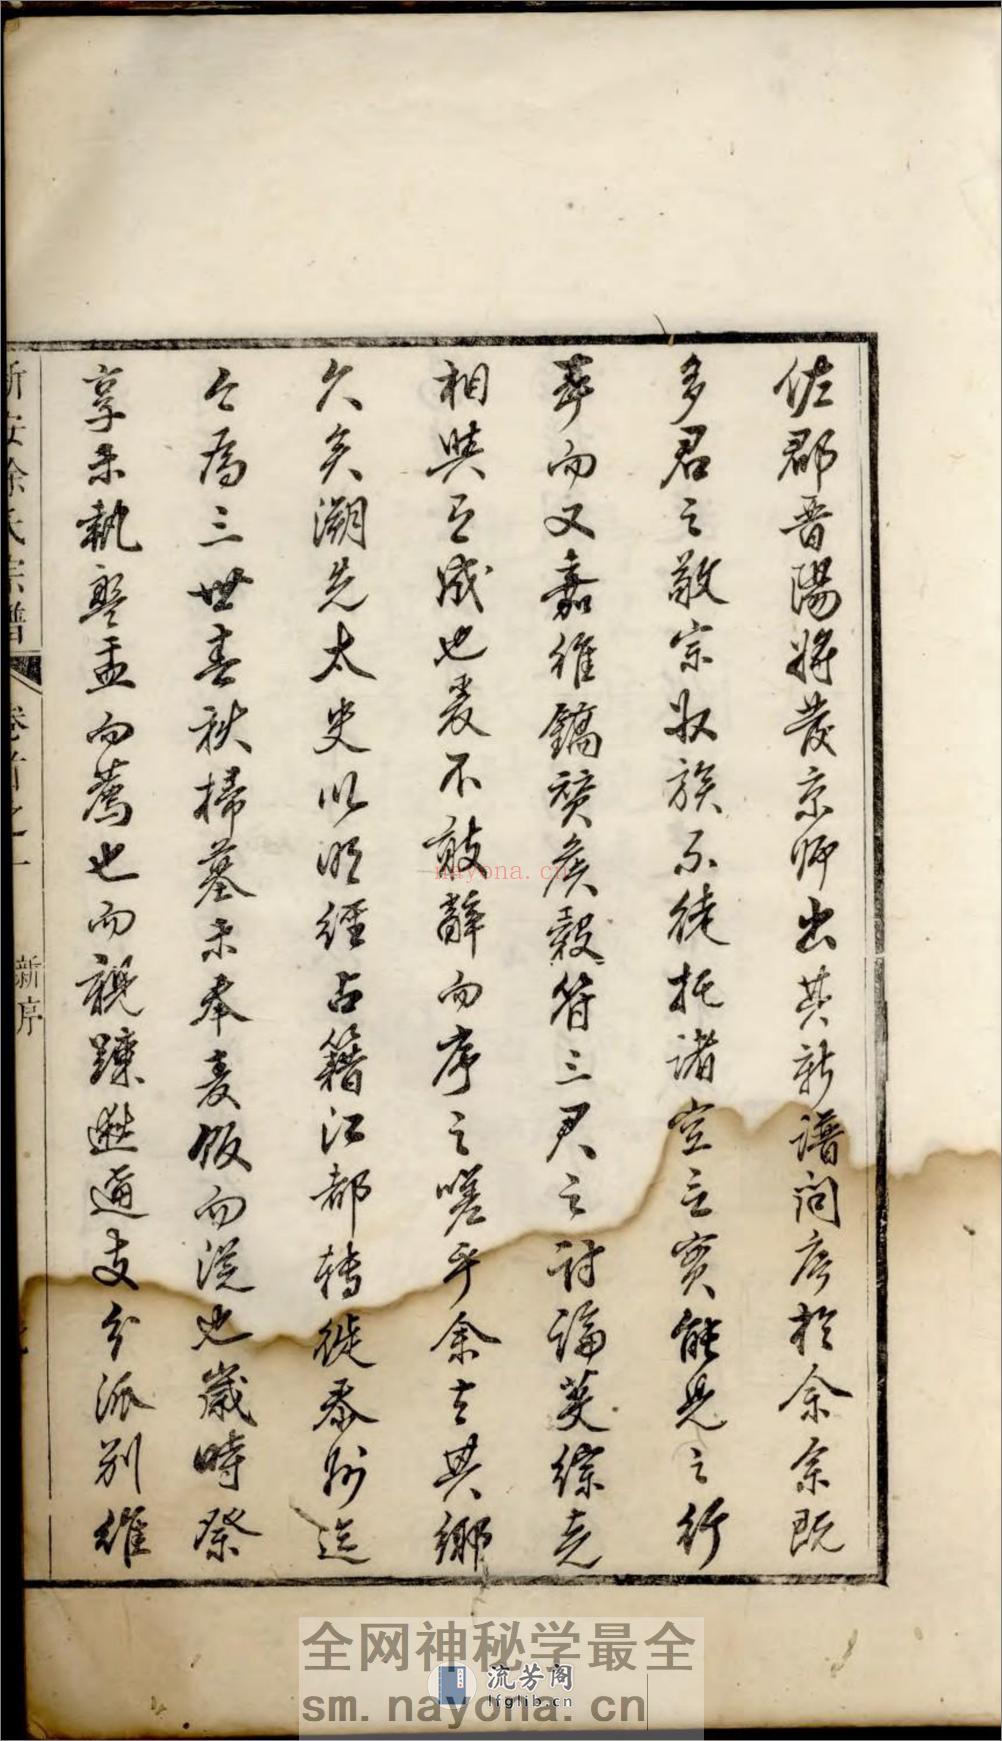 佐郡晉陽將發京師出其新譜問序於余余既
多君之敬宗收族不徒托諸空言實能見之行
事而又嘉維鏞 侯 符三君之討論 綜克
相與有成也爰不敢辭而序之嗟乎余去其鄉
久矣溯先太史以明經占籍江都轉徙泰州迄
今為三世春秋掃墓未奉麥飯而從也歲時祭
享未執盤盂而薦也而親疎遐邇支分派別維
新安徐氏宗譜 卷首之一 新序
nayona.cn
全网神秘学最全
流芳阁
lfglib.cn
sm.nayona.cn